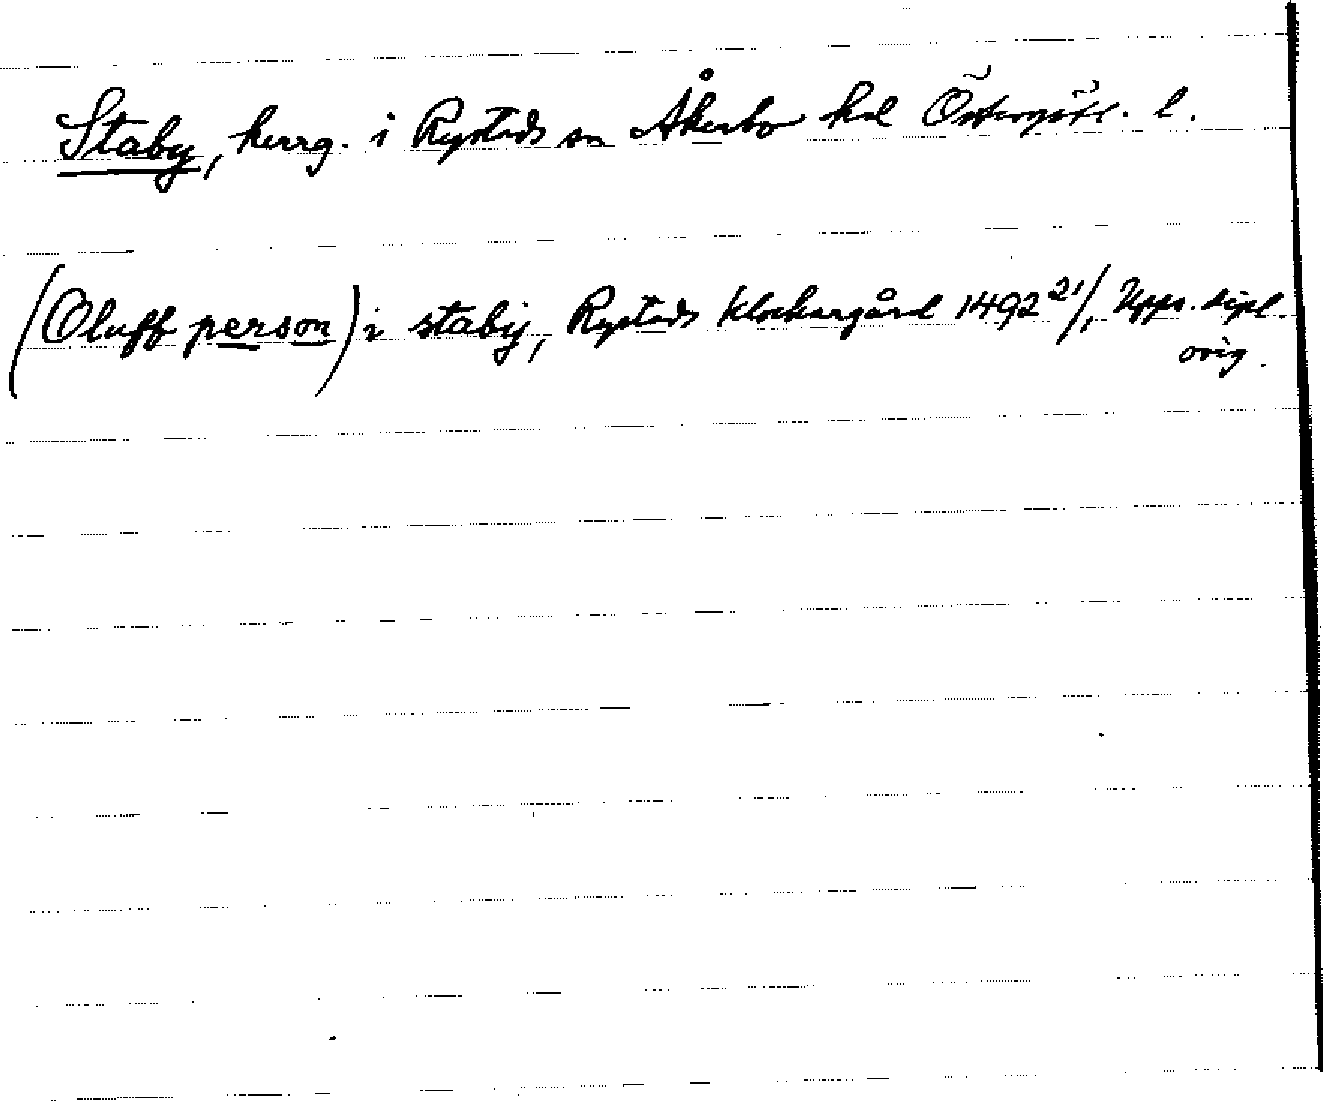 Staby, herrg. i Rystads sn Åkerbo hd Östergötl. l.
(Oluff person) i staby, Rystads Klockargård 1492 21/, Upps. dipl
orig.